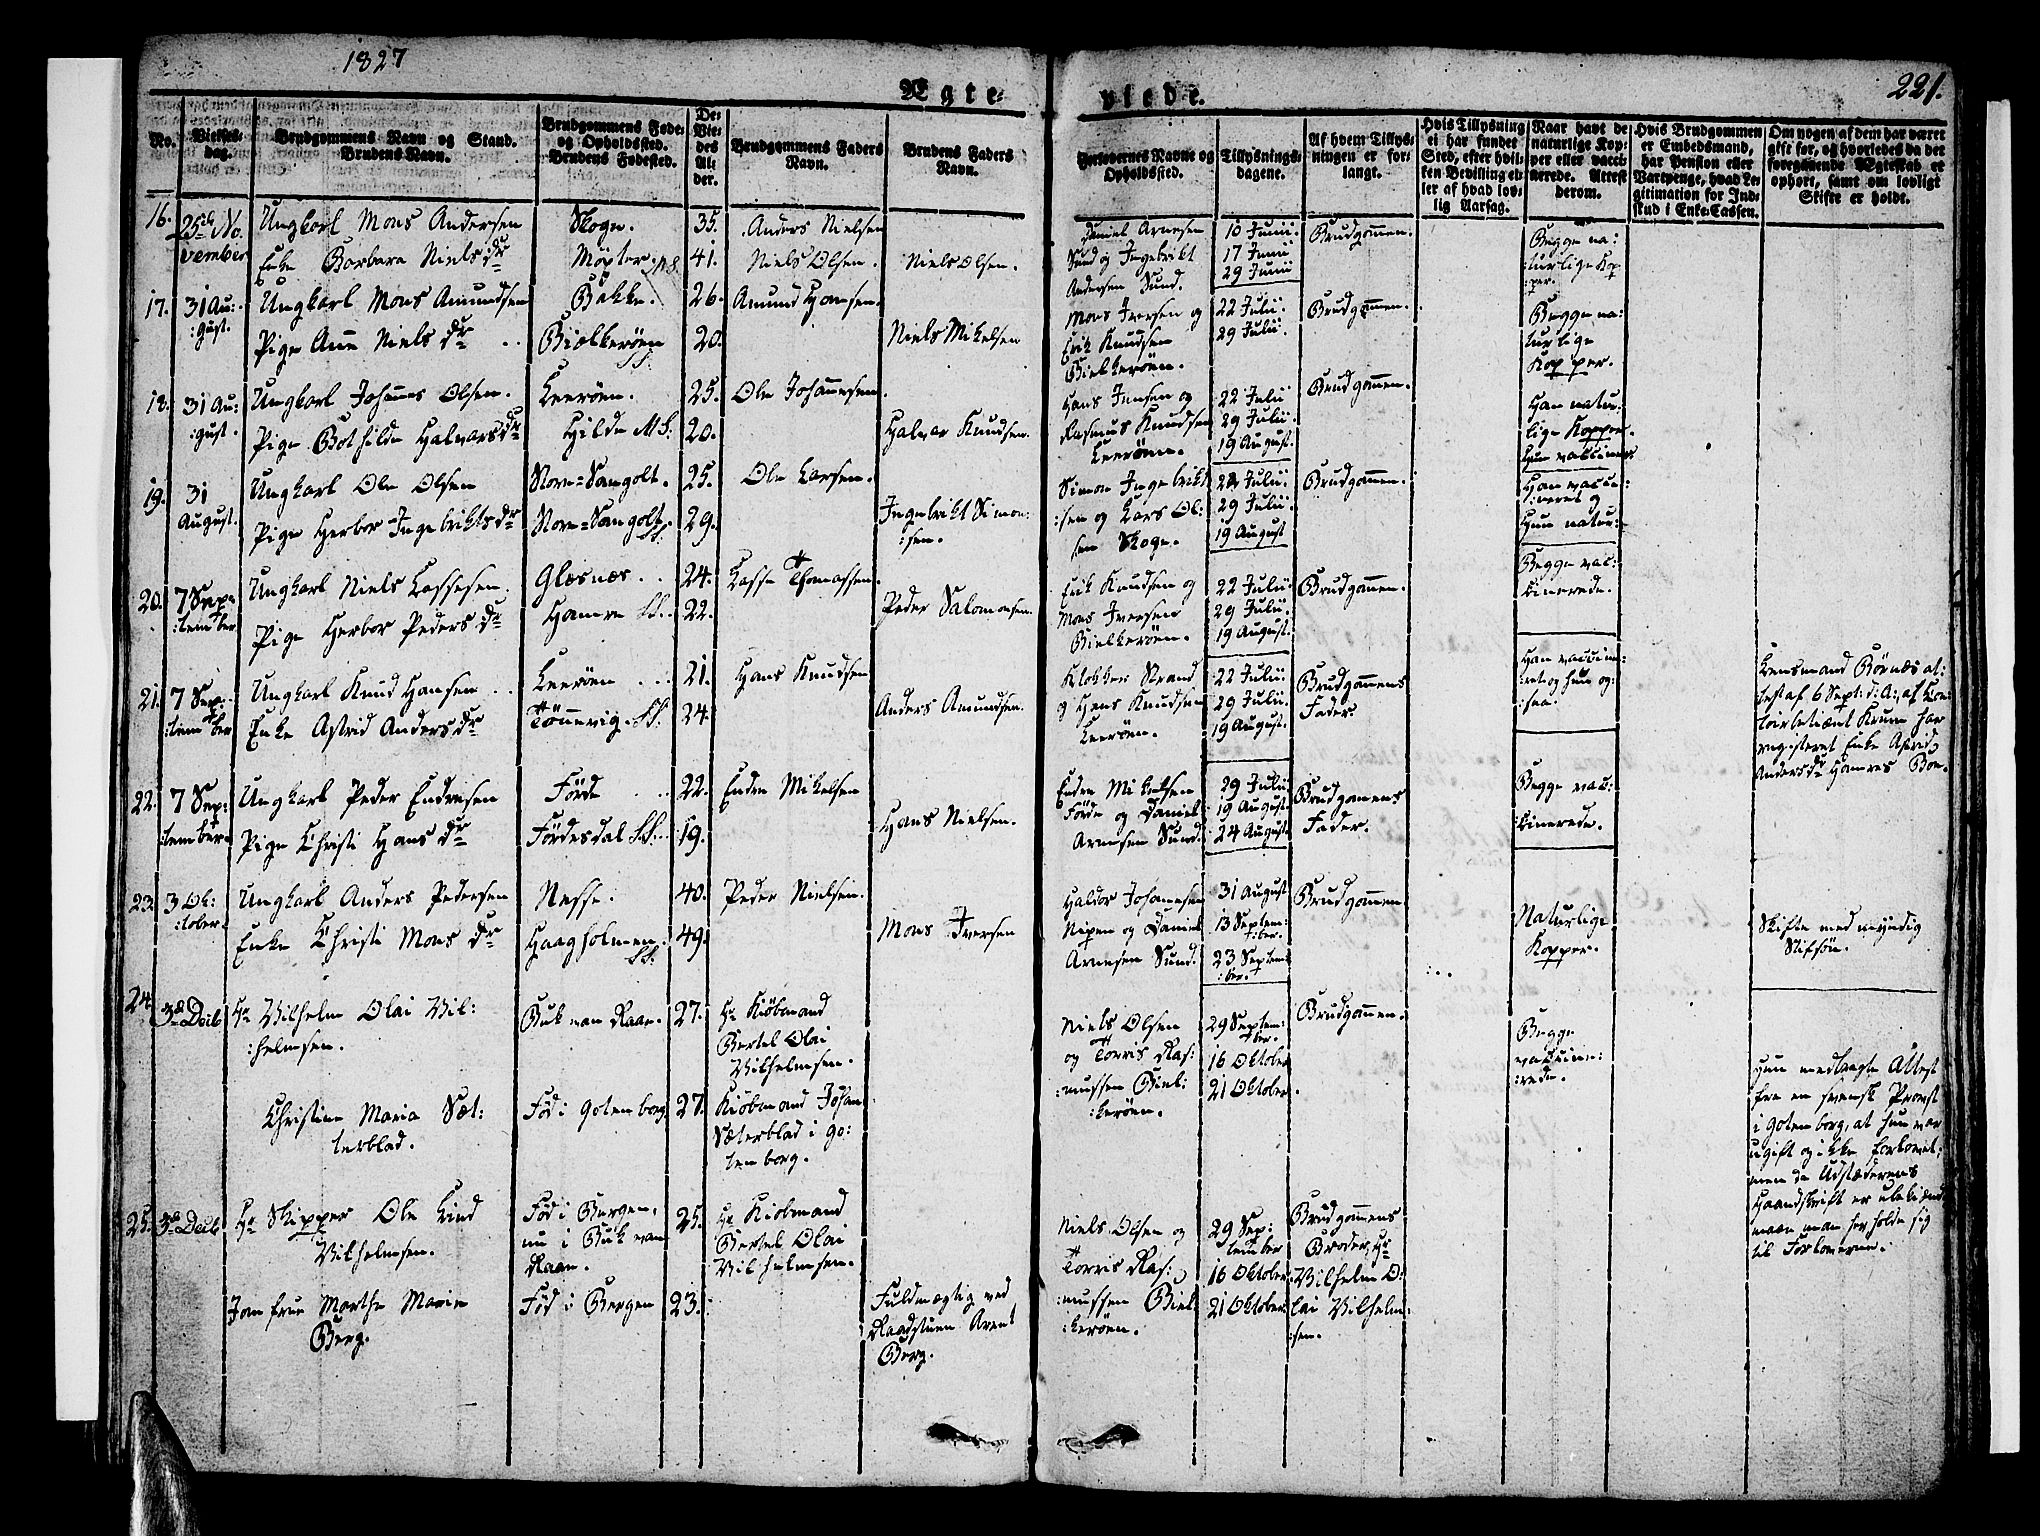 1827
221.
Ægte-
viede.
No.
Vielses-
dag.
Brudgommens Navn og Stand.
Brudens Navn.
Brudgommens Føde-
og Opholdssted.
Brudens Fødested.
De
Vie-
des
Al-
der.
Brudgommens Faders
Navn.
Brudens Faders
Navn.
Forlovernes Navne og
Opholdssted.
Tillysnings-
dagene.
Af hvem Tillys-
ningen er for-
langt.
Hvis Tillysning
ei har fundet
Sted, efter hvil-
ken Bevilling el-
ler af hvad lov-
lig Aarsag.
Naar havt de
naturlige Kop-
per eller vacci-
nerede. Attest
derom.
Hvis Brudgommen
er Embedsmand,
har Pension eller
Vartpenge, hvad Le-
gitimation for Ind-
skud i Enke-Cassen.
Om nogen af dem har været
gift før, og hvorledes da det
foregaaende Ægteskab er
ophørt, samt om lovligt
Skifte er holdt.
16.
25de No-
vember
Ungkarl Mons Andersen
Enke Barbara Niels dr
Skoge.
Møgster
35.
41.
Anders Nielsen
Niels Olsen.
Niels Olsen.
Daniel Arnesen
Sund og Ingebrikt
Andersen Sund.
10 Junii.
17 Junii
29 Junii
Brudgommen.
Begge na:
:turlige Kop-
:per.
17.
31 Au:
:gust.
Ungkarl Mons Amundsen
Pige Anne Niels dr
Bakke.
Bielkerøen
SS.
26.
20.
Amund Hansen.
Niels Mikelsen
Mons Iversen og
Erik Knudsen
Bielkerøen.
22 Julii.
29 Julii.
Brudgommen.
Begge na:
turlige
Kopper.
18.
31 Au:
:gust.
Ungkarl Johannes Olsen.
Pige Bothilde Halvars dr
Leerøen.
Hilde MS:
25.
20.
Ole Johannesen
Halvar Knudsen.
Hans Jensen og
Rasmus Knudsen
Leerøen.
22 Julii
29 Julii.
19 August.
Brudgommen.
Han natur:
lige Kopper.
Hun vaccineret
19.
31
August.
Ungkarl Ole Olsen
Pige Herbor Ingebrikts dr
Nore-Sangolt.
Nore-Sangolt
SS.
25.
29.
Ole Larsen.
Ingebrikt Simon-
:sen.
Simon Ingebrikt
:sen og Lars Ol:
sen Skoge.
22 Julii.
29 Julii.
19 August
Brudgommen.
Han vacci:
neret og
Hun natur:
20.
7 Sep-
:tember
Ungkarl Niels Lassesen
Pige Herbor Peders dr
Glæsnæs.
Hamre SS.
24.
22.
Lasse Thomassen.
Peder Salomonsen.
Erik Knudsen og
Mons Iversen
Bielkerøen.
22 Julii.
29 Julii.
19 August.
Brudgommen.
Begge vac:
cinerede.
21.
7 Sep:
:tember
Ungkarl Knud Hansen
Enke Astrid Anders dr
Leerøen
Tønnevig. SS.
21.
24.
Hans Knudsen
Anders Amundsen.
Klokker Strand
og Hans Knudsen
Leerøen.
22 Julii.
29 Julii.
19 August.
Brudgommens
Fader.
Han vaccine:
:ret og hun og:
:saa.
Lensmand Børnæs at:
test af 6 Sept: d: A:, af Kon-
toirbetient Krum har
registeret Enke Astrid
Anders dr Hamres Boe.
22.
7 Sep:
:tember.
Ungkarl Peder Endresen
Pige Christi Hans dr
Førde
Førdesdal SS.
22.
19.
Endre Mikelsen
Hans Nielsen.
Endre Mikelsen
Førde og Daniel
Arnesen Sund.
29 Julii
19 August.
24 August.
Brudgommens
Fader.
Begge vac:
cinerede.
23.
3 Ok:
:tober.
Ungkarl Anders Pedersen
Enke Christi Mons dr
Nesse.
Haagholmen
SS:
40.
49.
Peder Nielsen.
Mons Iversen
Haldor Johannesen
Nipen og Daniel
Arnesen Sund.
31 August
13 Septem:
:ber.
23 Septem
:ber.
Brudgommen
Naturlige
Kopper.
Skifte med myndig
Stifsøn.
24.
3de Decb
Hr Vilhelm Olai Vil:
:helmsen.
Christine Maria Sæt:
terblad.
Bukvan Raae.
Fød i Gotenborg
27.
27.
Hr Kiøbmand
Bertel Olai
Vilhelmsen.
Kiøbmand Johan
Sæterblad i Go:
tenborg.
Niels Olsen
og Torris Ras:
mussen Biel:
:kerøen.
29 Septem:
:ber.
16 Oktober
21 Oktober.
Brudgommen.
Begge
vaccine:
:rede.
Hun medbragte Attest
fra en svensk Provst
i Gotenborg, at hun var
ugift og ikke forlovet:
men da Udstæderens
Haandskrift er ubekiendt
maae man her holde sig
til Forloverne.
25.
3de Decb
Hr Skipper Ole Lind
Vilhelmsen.
Jomfrue Marthe Marie
Berg.
Fød i Bergen,
nu i Bukvan
Raae.
Fød i Bergen
25.
23.
Hr Kiøbmand
Bertel Olai
Vilhelmsen.
Fuldmægtig ved
Raadstuen Arent
Berg.
Niels Olsen og
Torris Ras:
:mussen Biel
:kerøen.
29 Sep:
tember
16 Oktober.
21 Oktober.
Brudgommens
Broder, Hr
Vilhelm O:
lai Vilhelm:
:sen.